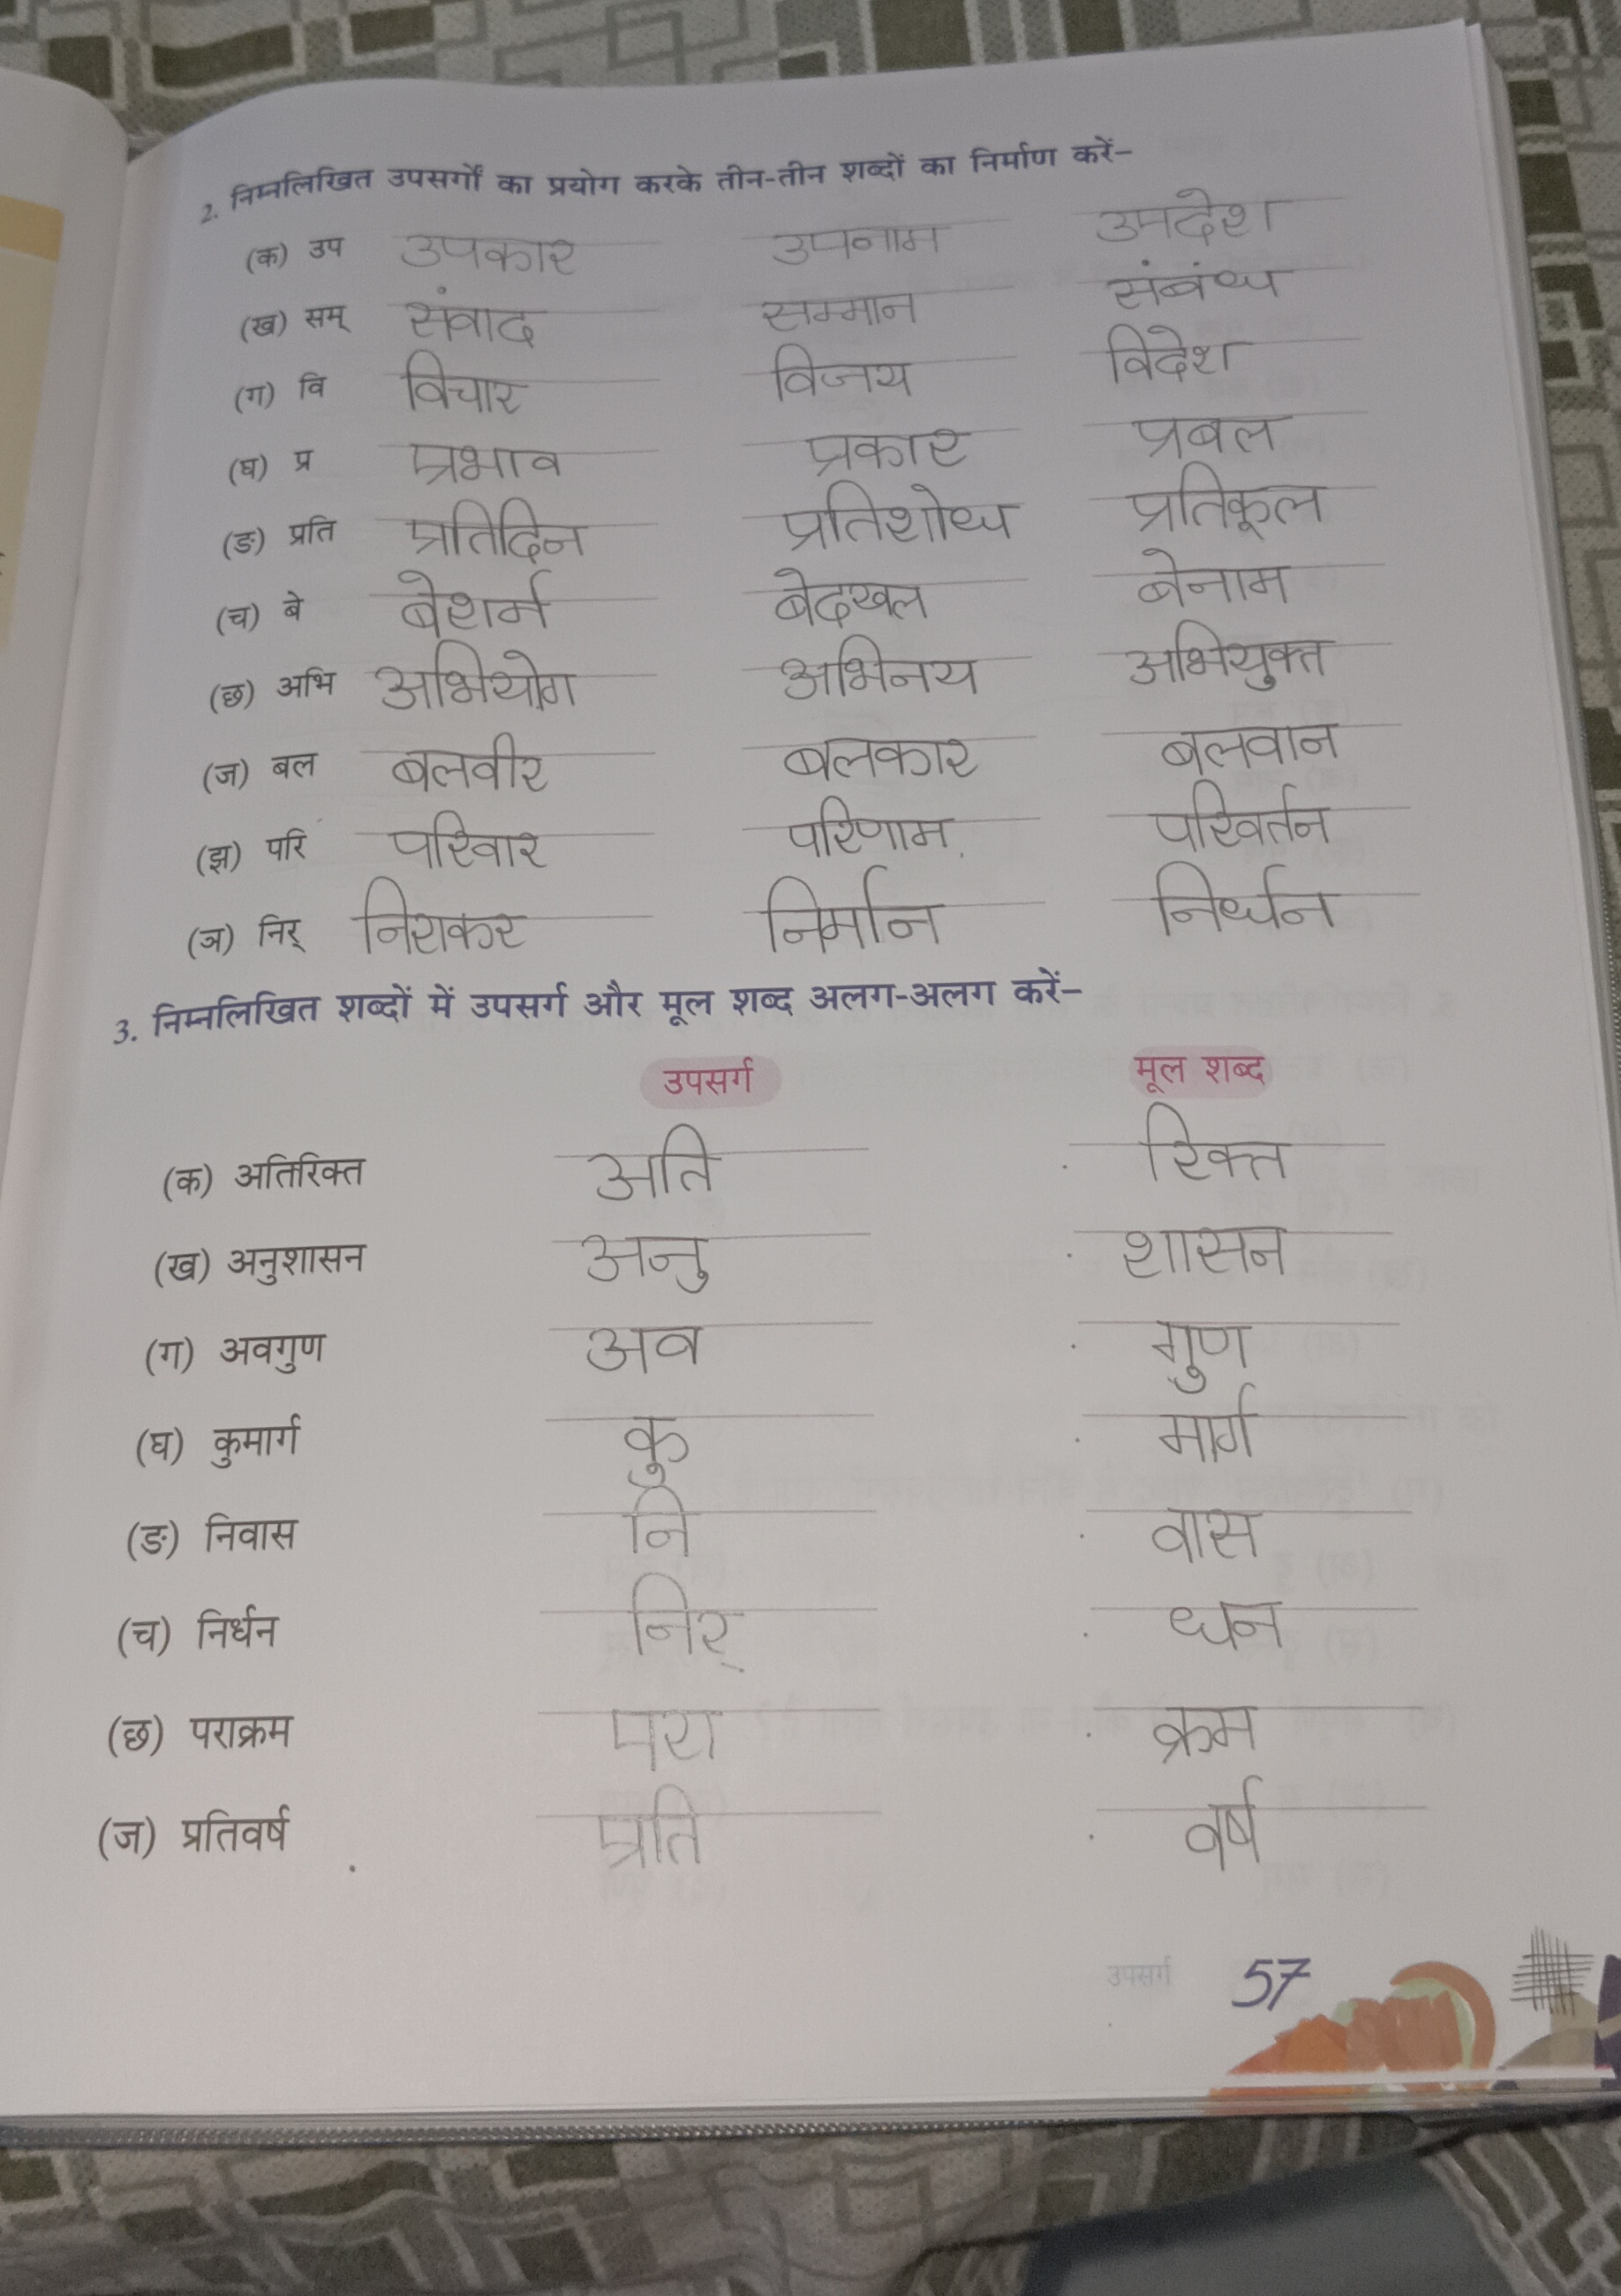 2. निम्नलिखित उपसर्गों का प्रयोग करके तीन-तीन शब्दों का निर्माण करें–
(क) उप उपकार उपनाम उपदेश
(ख) सम् संवाद सम्मान संबंध
(ग) वि विचार विजय विदेश
(घ) प्र प्रभाव प्रकार प्रबल
(ङ) प्रति प्रतिदिन प्रतिशोध प्रतिकूल
(च) बे बेशर्म बेदखल बेनाम
(छ) अभि अभियोग अभिनय अभियुक्त
(ज) बल बलवीर बलकार बलवान
(झ) परि परिवार परिणाम परिवर्तन
(ञ) निर् निराकर निर्मान निर्धन
3. निम्नलिखित शब्दों में उपसर्ग और मूल शब्द अलग-अलग करें–
उपसर्ग मूल शब्द
(क) अतिरिक्त अति रिक्त
(ख) अनुशासन अनु शासन
(ग) अवगुण अव गुण
(घ) कुमार्ग कु मार्ग
(ङ) निवास नि वास
(च) निर्धन निर् धन
(छ) पराक्रम परा क्रम
(ज) प्रतिवर्ष प्रति वर्ष
उपसर्ग 57